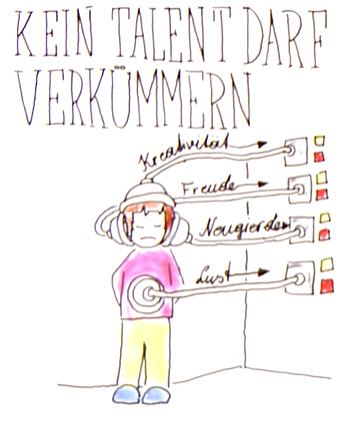 KEIN TALENT DARF
VERKÜMMERN
Kreativität
Freude
Neugierde
Lust